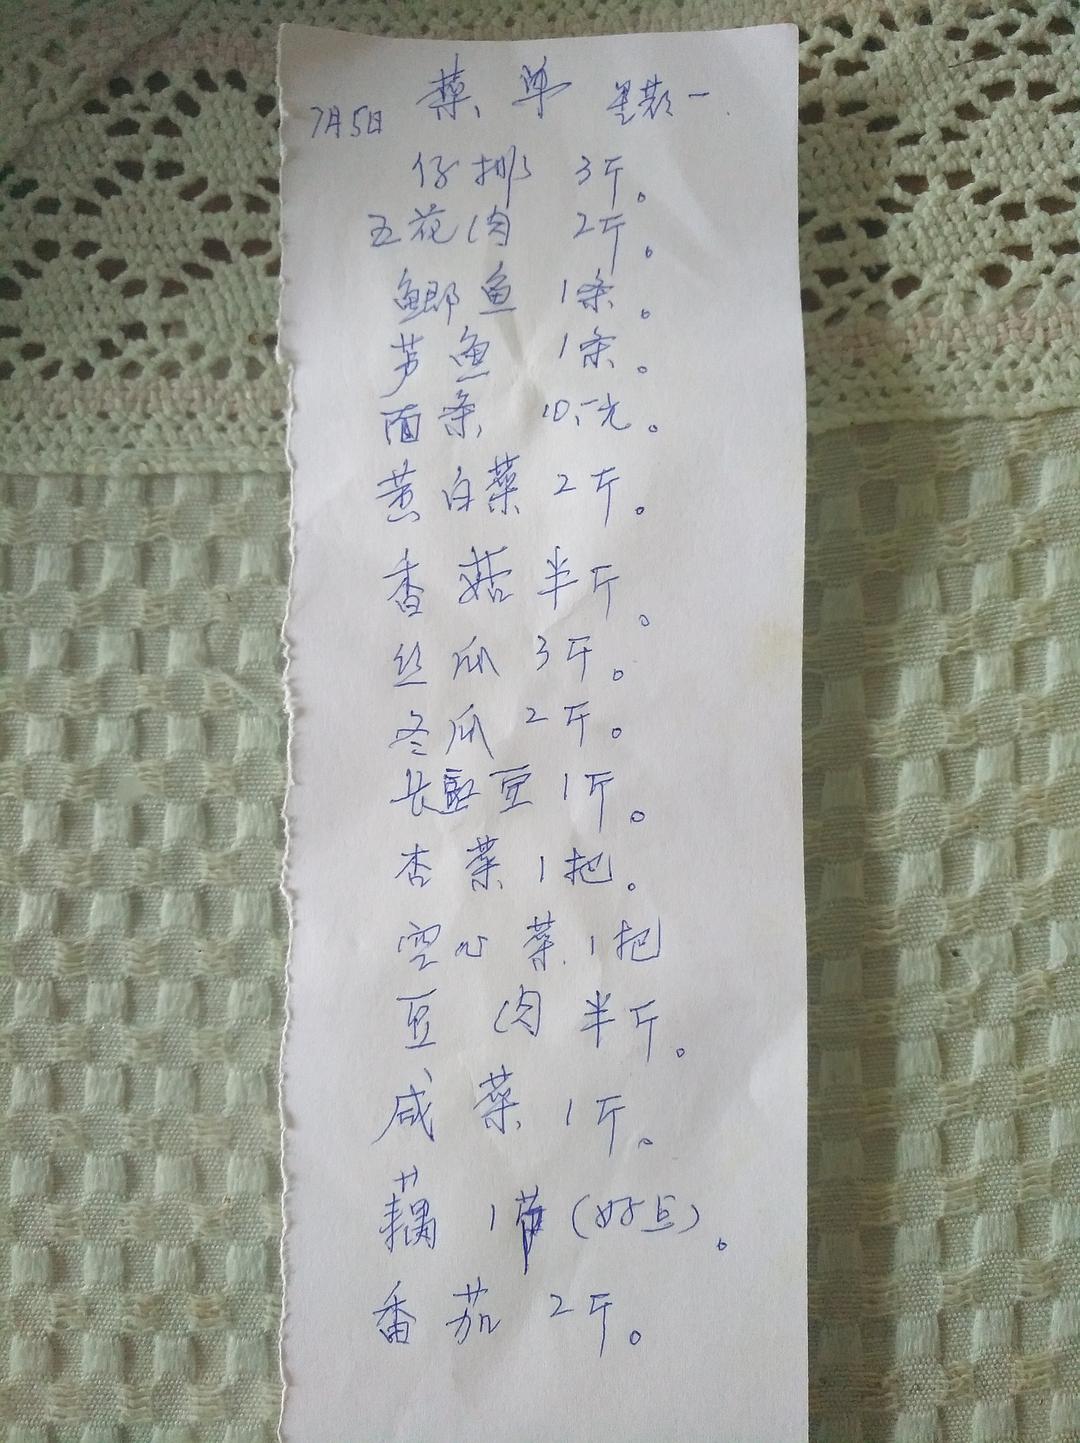 菜单
7月5日 星期一
仔排 3斤。
五花肉 2斤。
鲫鱼 1条。
芦鱼 1条。
面条 10元。
黄白菜 2斤。
香菇 半斤。
丝瓜 3斤。
冬瓜 2斤。
长豇豆 1斤。
杏菜 1把。
空心菜 1把
豆肉 半斤。
咸菜 1斤。
藕 1节(好点)。
番茄 2斤。